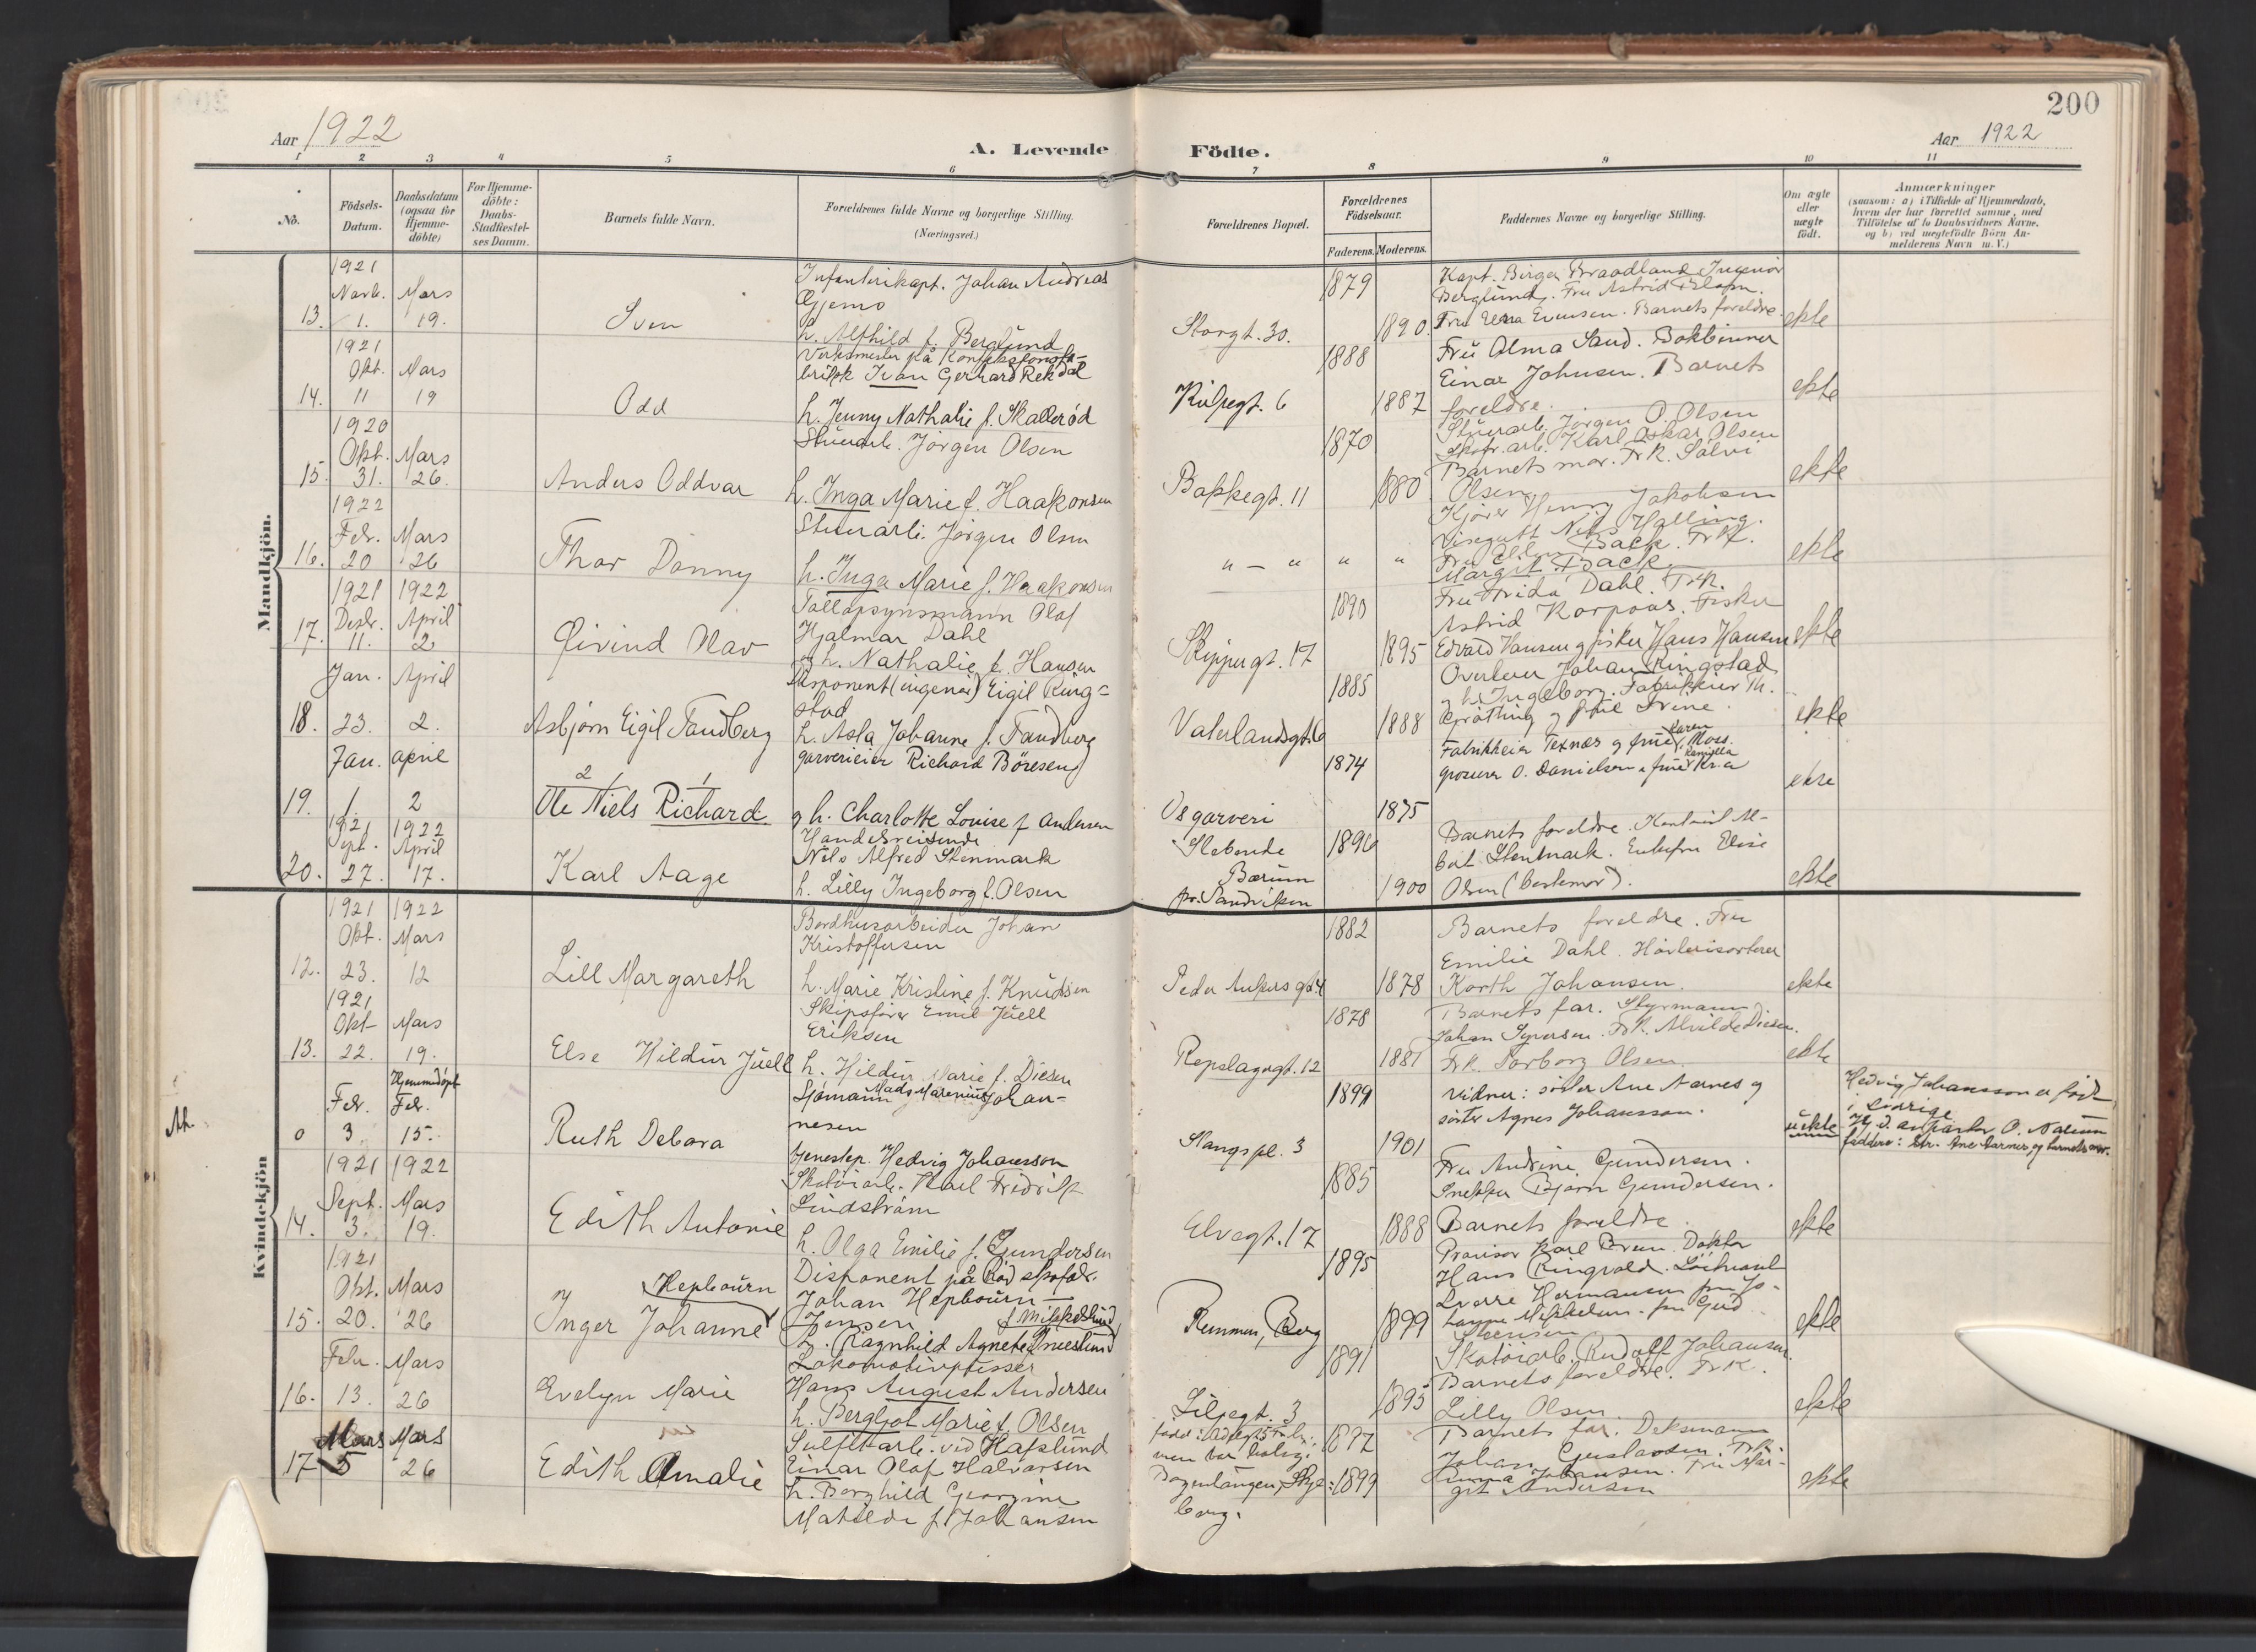 200
Aar 1922
A. Levende Födte.
Aar 1922
1 2 3 4 5 6 7 8 9 10 11
No.
Födsels-
Datum.
Daabsdatum
(ogsaa for
Hjemme-
döbte)
For Hjemme-
döbte:
Daabs-
Stadfæstel-
ses Datum.
Barnets fulde Navn.
Forældrenes fulde Navne og borgerlige Stilling.
(Næringsvei.)
Forældrenes Bopæl.
Forældrenes
Födselsaar.
Faderens. Moderens.
Faddernes Navne og borgerlige Stilling.
Om ægte
eller
uægte
födt.
Anmærkninger
(saasom: a) i Tilfælde af Hjemmedaab,
hvem der har forrettet samme, med
Tilföielse af to Daabsvidners Navne,
og b) ved uægtefödte Börn An-
melderens Navn m. V.)
Mandkjön.
13.
1921
Novb.
1.
Mars
19.
Sven
Infanterikapt. Johan Andreas
Gjemo
h. Alfhild f. Berglund
Storgt. 30.
1879
1890.
Kapt. Birger Braadland Ingeniör
Berglund. Fru Astrid
Fru Evensen. Barnets foreldre.
ekte
14.
1921
Okt.
11
Mars
19
Odd
Verksmester på Konfeksjonsfa-
brikk Ivan Gerhard Rekdal
h. Jenny Nathalie f. Skallerød
6
1888
1887
Fru Alma Sand. Bokbinner
Einar Johnsen. Barnets
foreldre.
ekte
15.
1920
Okt.
31.
Mars
26.
Anders Oddvar
Stuerarb. Jörgen Olsen
h. Inga Marie f. Haakonsen
Bakkegt. 11
1870
1880
Stuerarb. Jörgen O. Olsen
Skofr. arb. Karl Oskar Olsen
Barnets mor. Frk. Solvi
Olsen
ekte
16.
1922
Febr.
20
Mars
26
Thor Donny
Stuerarb. Jörgen Olsen
h. Inga Marie f. Haakonsen
" — "
"
"
Kjörer Henry Jakobsen
Visegutt Nils Halling.
Fru Back. Frk.
Margit Back.
ekte
17.
1921
Desbr.
11.
1922
April
2
Øivind Olav
Tollopsynsmann Olaf
Hjalmar Dahl
og h. Nathalie f. Hansen
Skippergt. 17
1893
1895
Fru Frida Dahl. Frk.
Astrid Korpaas. Fisker
Edvard Hansen og fisker Hans Hansen
ekte
18.
Jan.
23.
April
2.
Asbjørn Eigil Tandberg
Disponent (ingeniør) Eigil Ring-
stad
h. Asla Johanne f. Tandberg
Vaterlandsgt. 6
1885
1888
Overlærer Johan Ringstad
og h. Ingeborg. Fabrikkeier Th.
og frue Irene.
ekte
19.
Jan.
1.
april
2
2 1 1
Ole Niels Richard
garverieier Richard Böresen
og h. Charlotte Louise f Andersen
Os garveri
1874
1875
Fabrikkeier Texnæs og frue Karen, Moss.
grosserer O. Danielsen og frue Kamilla Kr.a
ekte
20.
1921
Sept.
27.
1922
April
17.
Karl Aage
Handelsreisende
Nils Alfred Stenmark
h. Lilly Ingeborg f. Olsen
Slebende
Bærum
pr. Sandviken
1896
1900
Barnets foreldre. Kontorist Al-
bert Stenmark. Enkefru Elise
Olsen (bestemor).
ekte
Kvindekjön
12.
1921
Okt.
23.
1922
Mars
12
Lill Margareth
Bordhusarbeider Johan
Kristoffersen
h. Marie Kristine f. Knudsen
Peder Ankers gt. 4
1882
1878
Barnets foreldre. Fru
Emilie Dahl. Høvlerisorterer
Korth Johansen.
ekte
13.
1921
Okt
22.
Mars
19.
Else Hildur Juell
Skipsfører Emil Juell
Eriksen
h. Hildur Marie f. Diesen
Repslagergt. 12
1878
1881
Barnets far. Styrmann
Johan Syversen. Frk. Alvilde Diesen.
Frk. Torborg Olsen.
ekte
0
Febr.
3
Hjemmedöpt
Febr.
15.
Ruth Debora
Sjømann Mads Marenius Johan-
nesen
tjenestep. Hedvig Johansson
Stangspl. 3
1899
1901
Vidner: søster Ane Aarnes og
søster Agnes Johansson.
uekte
Hedvig Johansson er født
i Sverige
Hj. d. av pastor O. Aalum
faddere: Str. Ane Aarnes og barnets mor.
14.
1921
Sept.
3.
1922
Mars
19.
Edith Antonie
Skotöiarb. Karl Fredrik
Lindström
h. Olga Emilie f. Gundersen
Elvegt. 17
1885
1888
Fru Andrine Gundersen.
Snekker Bjørn Gundersen.
Barnets foreldre.
ekte
15.
1921
Okt.
20.
Mars
26
Inger Johanne Hepbourn
Disponent på Rød skofabr.
Johan Hepbourn
Jensen
h. Ragnhild Agnete f Mikkelsen
Remmen, Berg
1895
1899
Provisor Karl Bruun. Doktor
Hans Ringvold. Löitnant
Sverre Hermansen fru Jo-
hanne Mikkelsen. fru Gerd
Stensen
ekte
16.
Febr.
13.
Mars
26
Evelyn Marie
Lokomotivpusser
Hans August Andersen
h. Bergljot Marie f. Olsen
Liljegt. 3
1891
1895
Skotöiarb. Rudolf Johansen.
Barnets foreldre. Frk.
Lilly Olsen.
ekte
17
Mars
5
Mars
26
Edith Amalie
Sulfittarb. ved Hafslund
Einar Olaf Halvorsen
h. Borghild Georgine
Matilde f. Johansen
men bor
Skje-
berg.
1897
1899
Barnets far. Deksmann
Johan Gustavsen. Frk.
Johansen. Fru Mar-
git Andersen
ekte